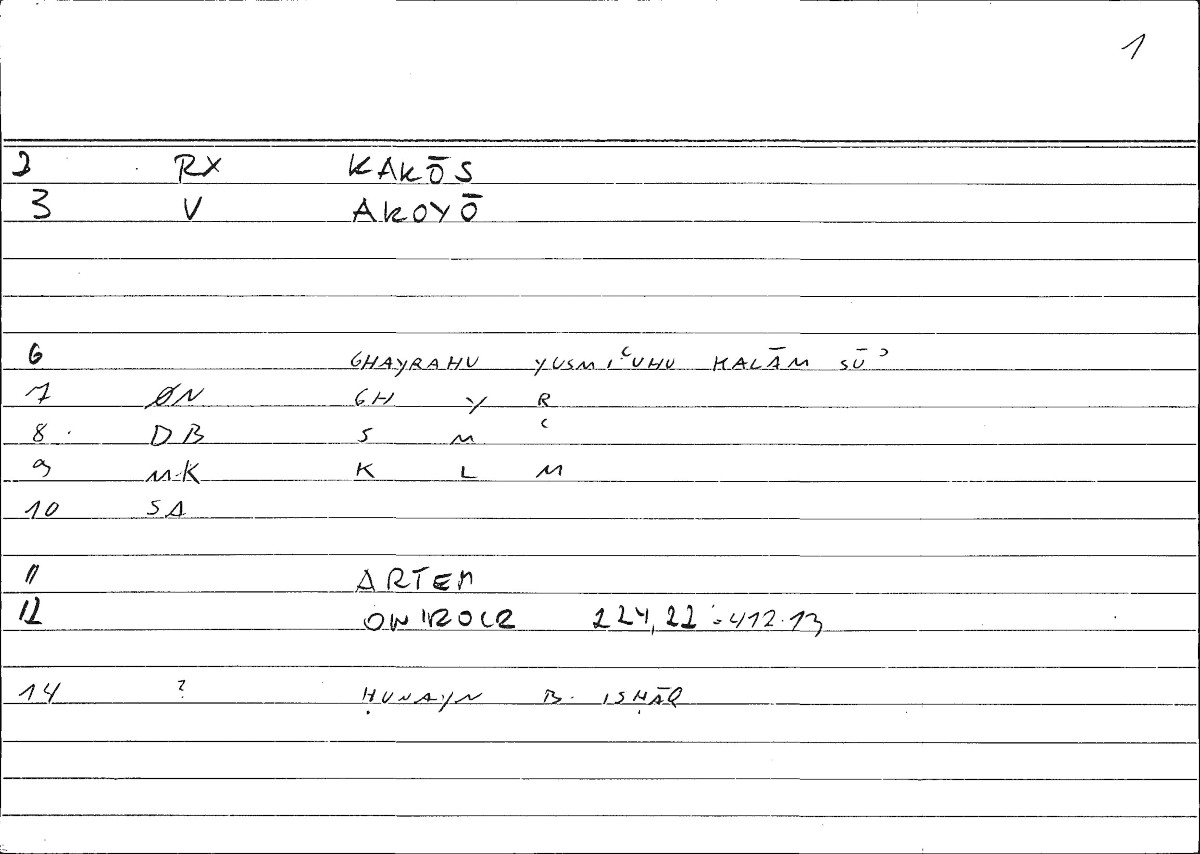 1
2 RX KAKŌS
3 V AKOYŌ
6 GHAYRAHU YUSMIʿUHU KALĀM SŪʾ
7 ØN GH Y R
8 DB S M ʿ
9 MK K L M
10 SA
11 ARTEM
12 ONIROCR 224,22 : 412.13
14 ? ḤUNAYN B. ISḤĀQ